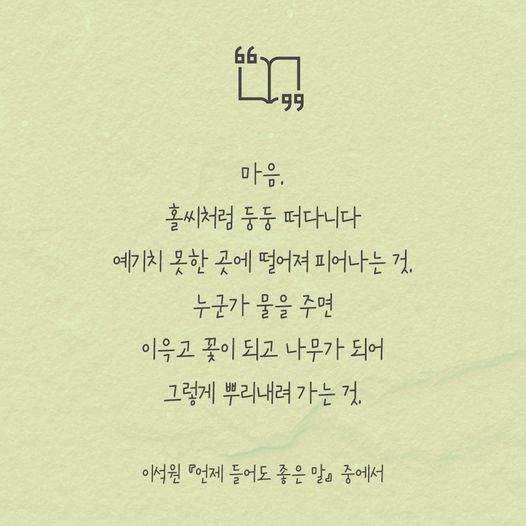 마음.
홀씨처럼 둥둥 떠다니다
예기치 못한 곳에 떨어져 피어나는 것.
누군가 물을 주면
이윽고 꽃이 되고 나무가 되어
그렇게 뿌리내려 가는 것.
이석원 『언제 들어도 좋은 말』 중에서